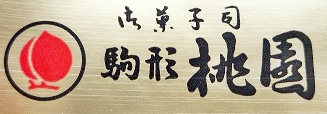 御菓子司
駒形 桃園